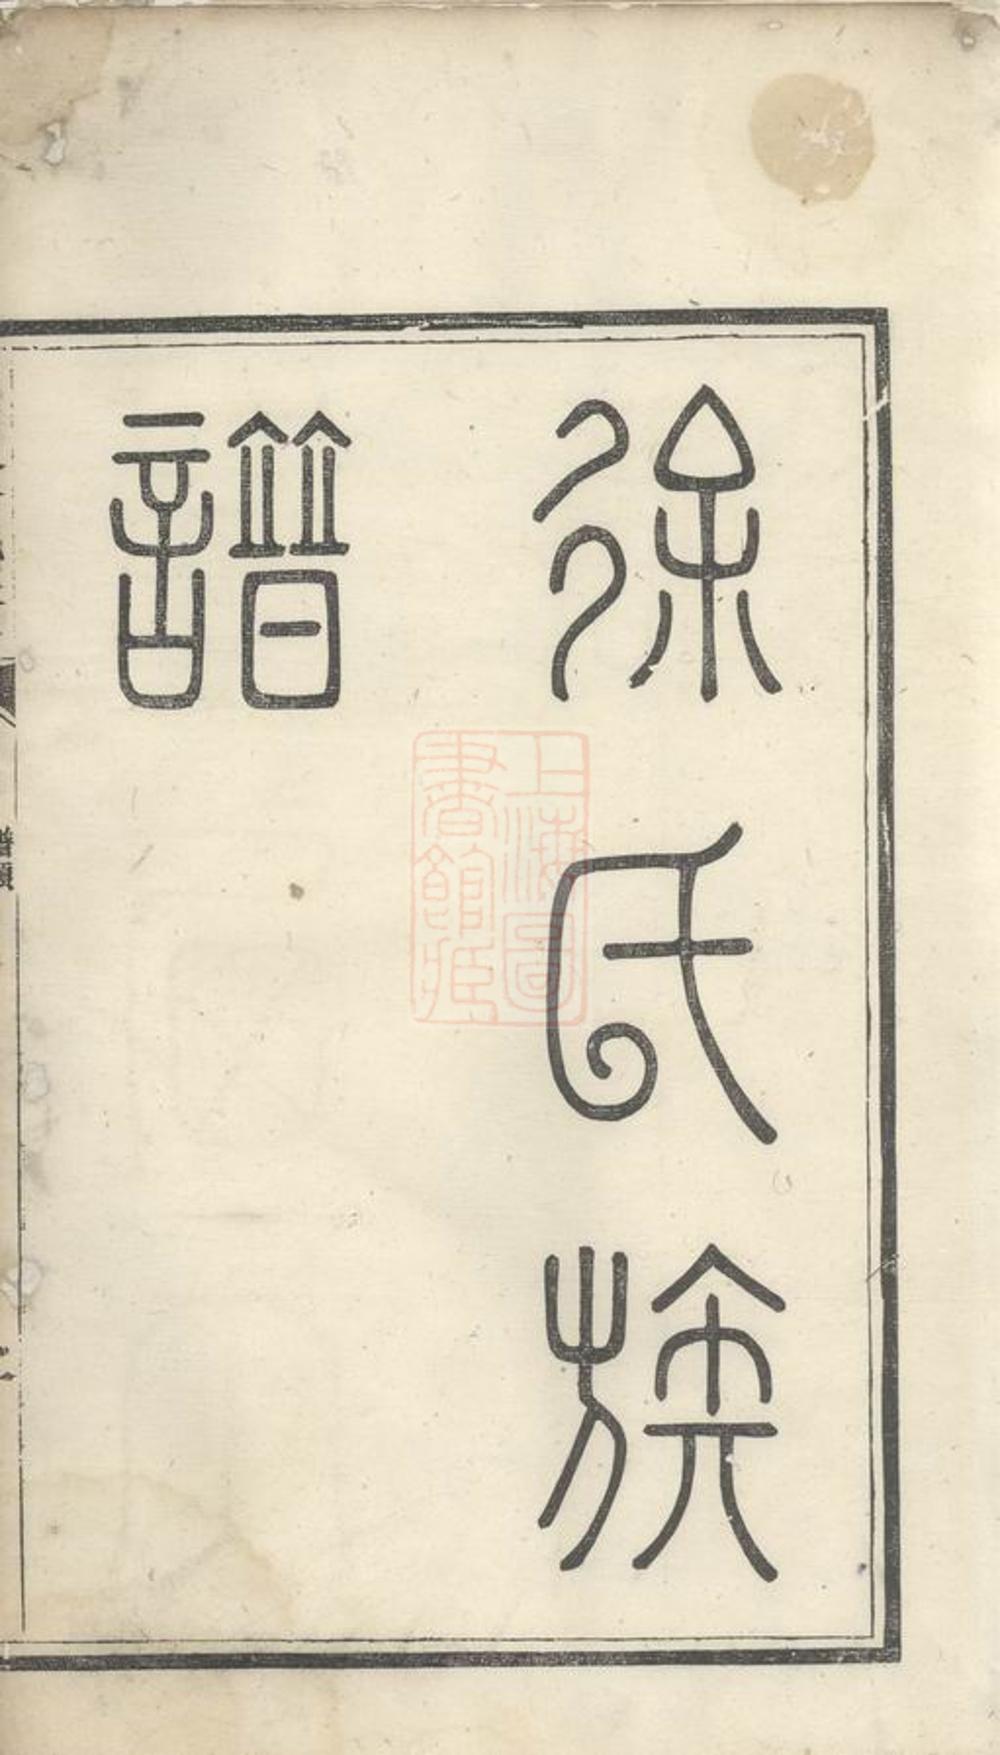 徐氏族
譜
上海圖
書館藏
譜類